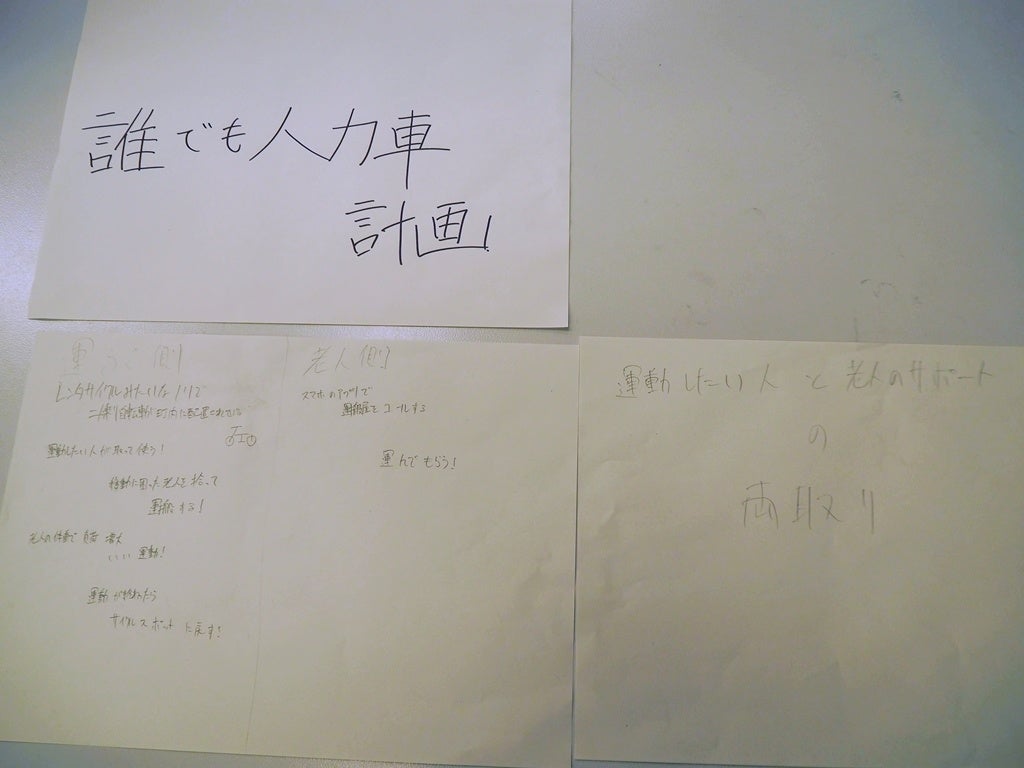 誰でも人力車
計画!
運ぶ側
レンタサイクルみたいなノリで
二人乗り自転車が町内に配置されている
運動したい人が取って使う!
移動に困った老人を拾って
運搬する!
老人の体重で負荷増大
いい運動!
運動が終わったら
サイクルスポットに戻す!
老人側
スマホのアプリで
運搬屋をコールする
運んでもらう!
運動したい人と老人のサポート
の
両取り